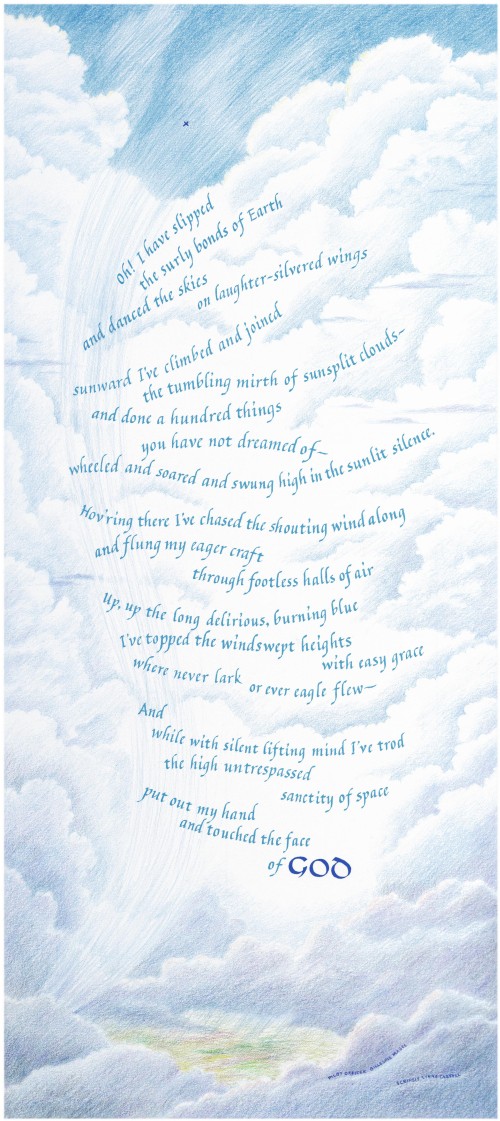 Oh! I have slipped
the surly bonds of Earth
and danced the skies
on laughter-silvered wings
sunward I've climbed and joined
the tumbling mirth of sunsplit clouds—
and done a hundred things
you have not dreamed of—
wheeled and soared and swung high in the sunlit silence.
Hov'ring there I've chased the shouting wind along
and flung my eager craft
through footless halls of air
Up, up the long delirious, burning blue
I've topped the windswept heights
with easy grace
where never lark
or ever eagle flew—
And
while with silent lifting mind I've trod
the high untrespassed
sanctity of space
put out my hand
and touched the face
of GOD